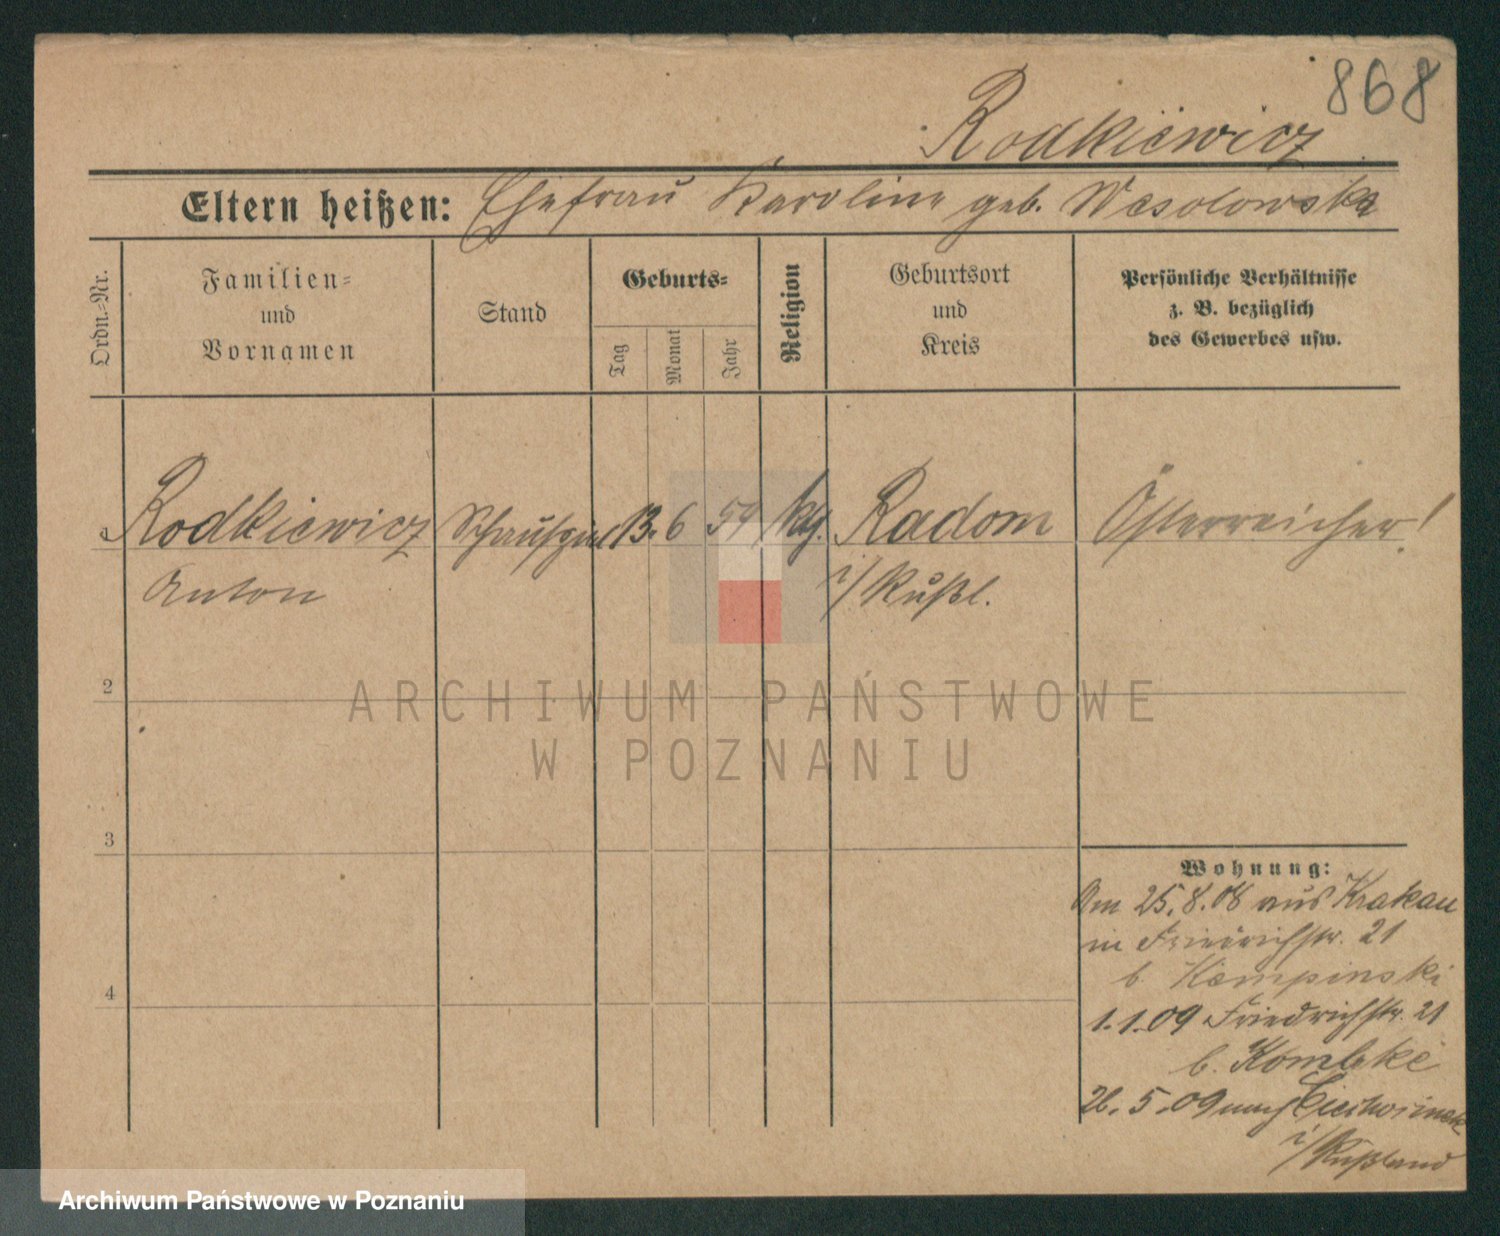 868
Rodkiewicz
Eltern heißen: Ehefrau Karoline geb. Wesolowska
Ordn.-Nr.
Familien- und Vornamen
Stand
Geburts-
Tag
Monat
Jahr
Religion
Geburtsort und Kreis
Persönliche Verhältnisse
z. B. bezüglich
des Gewerbes usw.
Rodkiewicz Schauspiel 13. 6 59 kg. Radom Österreicher!
Anton i/Rußl.
2
3
4
Wohnung:
Am 25.8.08 aus Krakau
in Friedrichstr. 21
b. Kempinski
1.1.09 Friedrichstr. 21
b.
26.5.09 nach
i/Rußland
ARCHIWUM PAŃSTWOWE
W POZNANIU
Archiwum Państwowe w Poznaniu